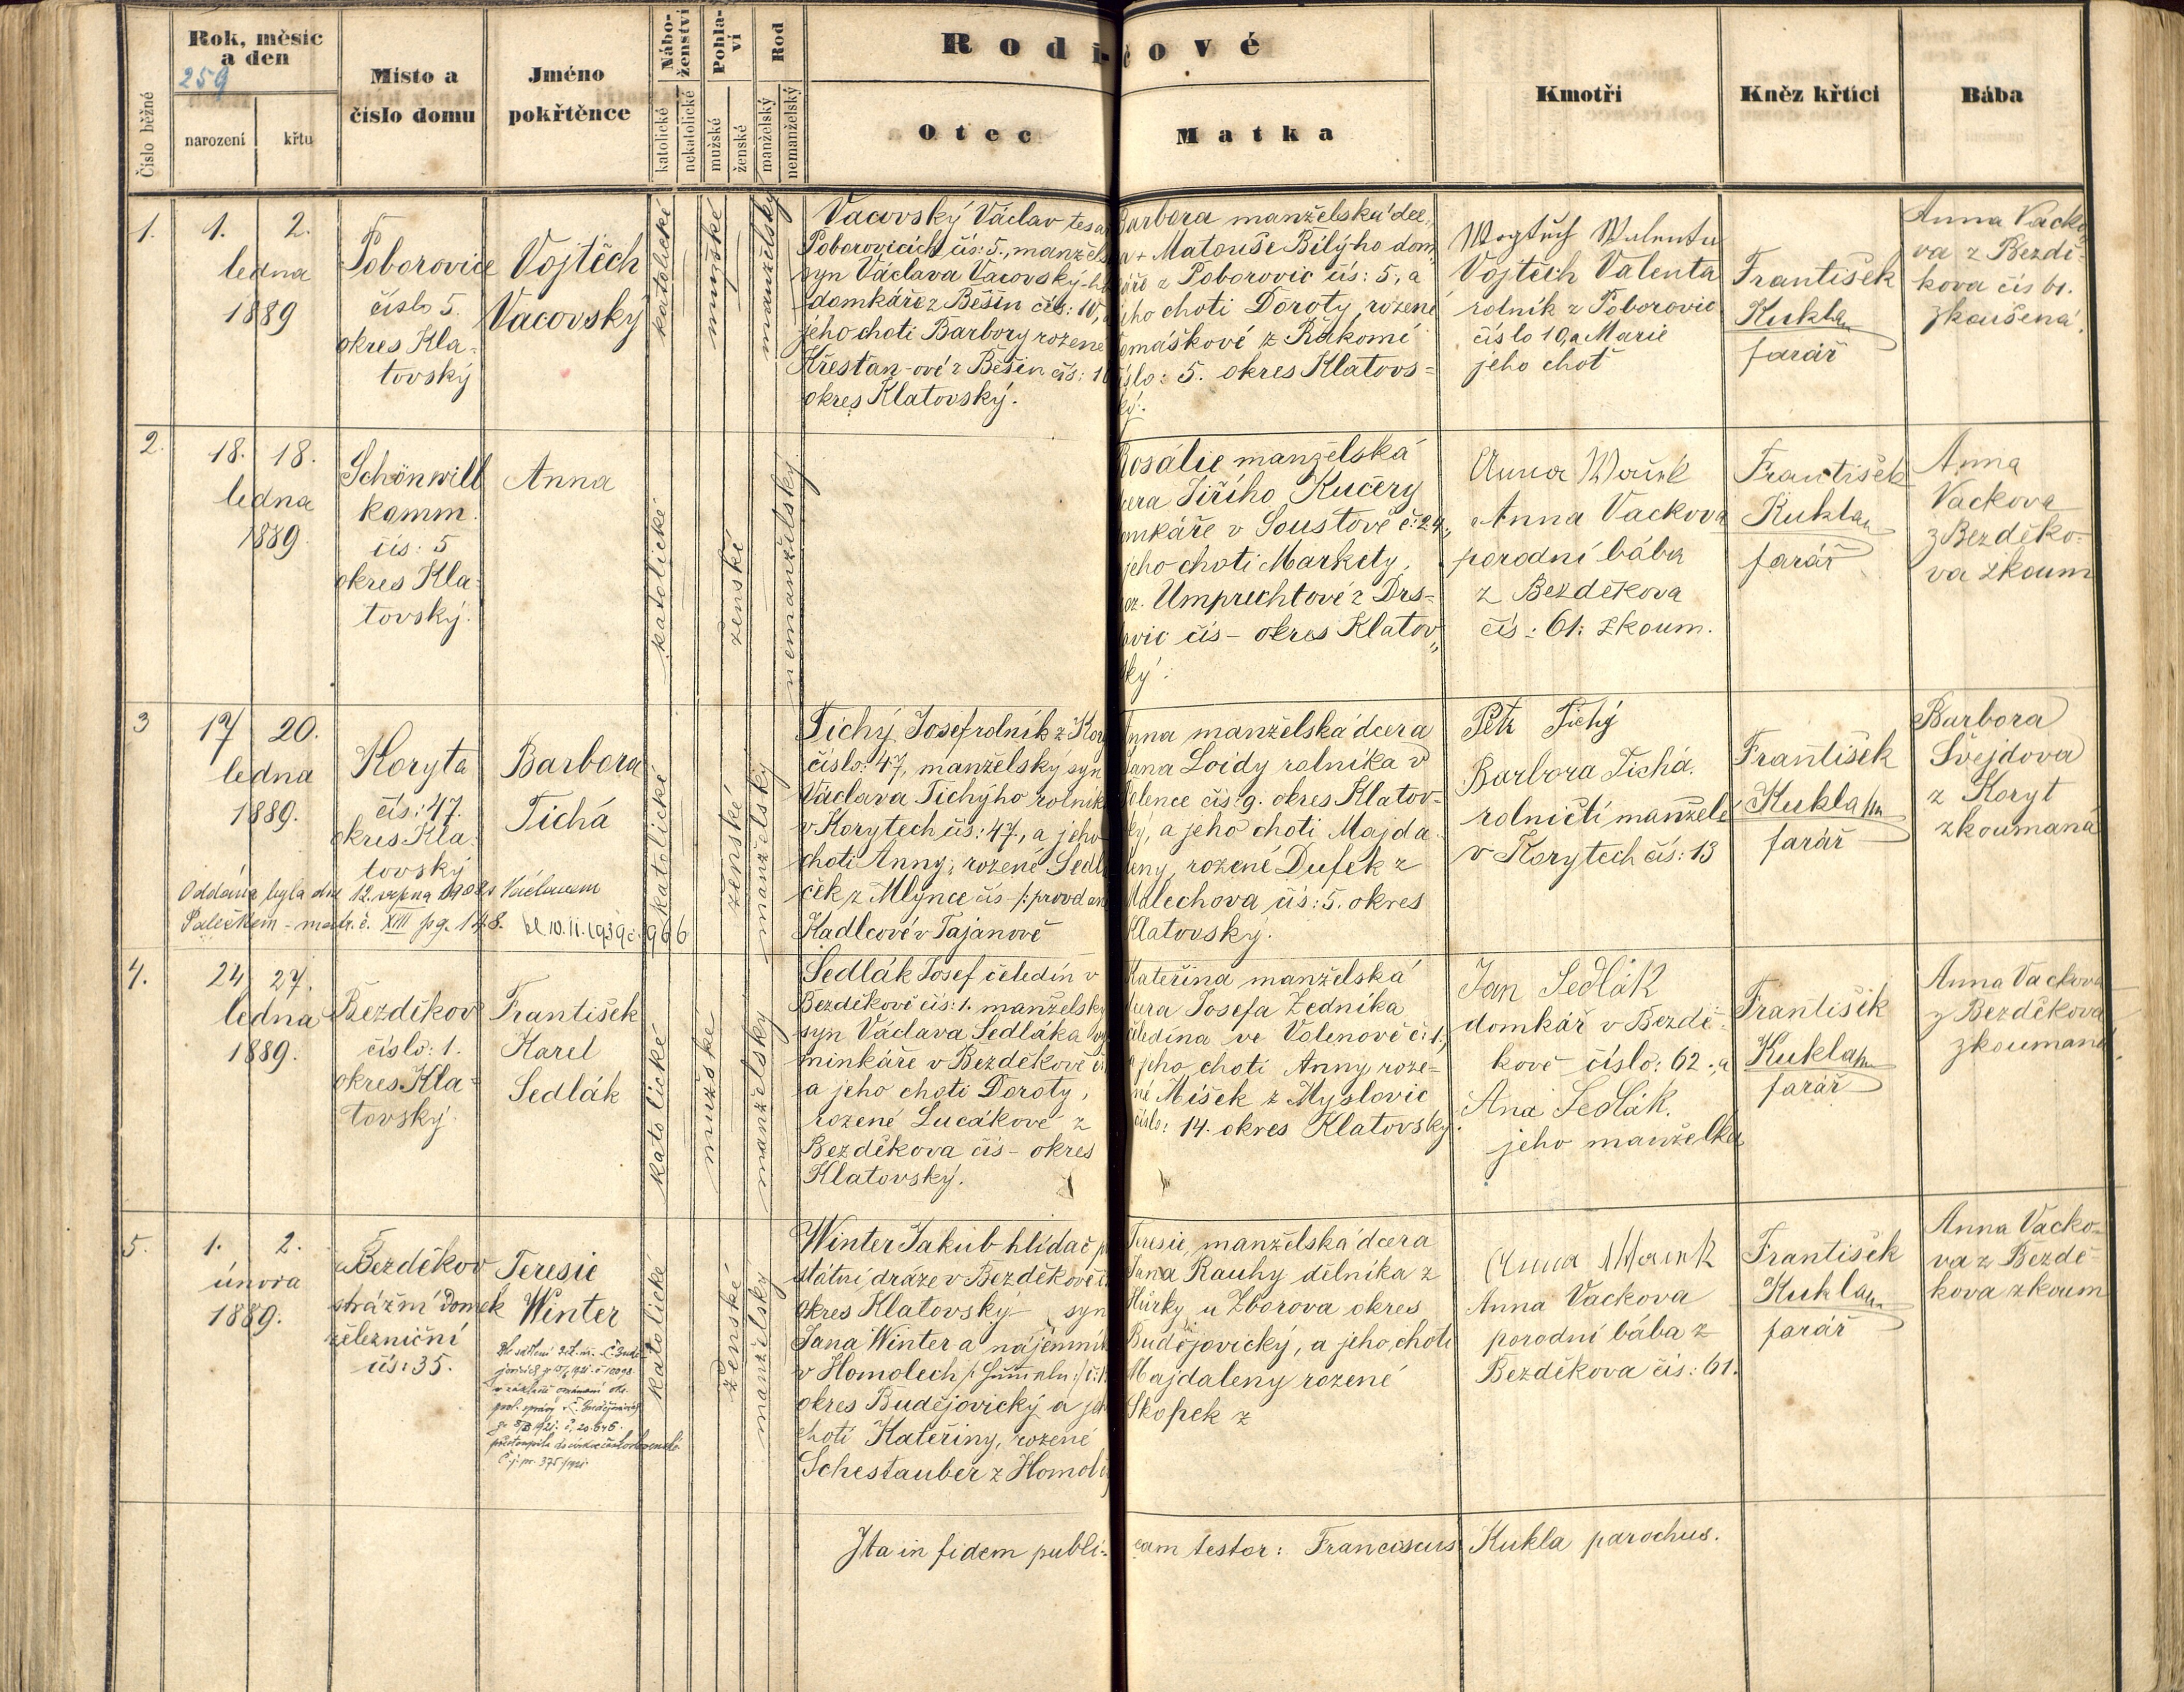 Číslo běžné
Rok, měsíc
a den
259
narození
křtu
Místo a
číslo domu
Jméno
pokřtěnce
Nábo-
ženství
katolické
nekatolické
Pohla-
ví
mužské
ženské
Rod
manželský
nemanželský
Rodi-
čové
Otec
Matka
Kmotři
Kněz křtící
Bába
1.
1. 2.
ledna
1889
Poborovice
číslo 5.
okres Kla-
tovský
Vojtěch
Vacovský
katolické
mužské
manželský
Vacovský Václav tesař
Poborovicích čís: 5., manžels
syn Václava Vacovský-h
domkáře z Běšin čís: 10, a
jeho choti Barbory rozené
Křesťan-ové z Běšin čís: 10
okres Klatovský.
Barbora manželská dce
a + Matouše Bílýho dom
káře z Poborovic čís: 5, a
jeho choti Doroty rozené
omáškové z Řakomí
číslo: 5. okres Klatovs-
ký.
Vojtěch Valenta
rolník z Poborovic
číslo 10, a Marie
jeho choť
František
Kukla
farář
Anna Vacko
va z Bezdě-
kova čís 61.
zkoušená.
2.
18. 18.
ledna
1889.
Schönwill
komm.
čís: 5
okres Kla-
tovský.
Anna
katolické
ženské
nemanželský
Rosálie manželská
cera Jiřího Kučery
omkáře v Soustově č: 24.,
jeho choti Markety,
oz. Umprechtové z Drs-
avic čís - okres Klatov„
ský.
Anna
Anna Vackova
porodní bába
z Bezděkova
čís: 61: zkoum.
František
Kukla
farář
Anna
Vackova
z Bezděko-
va zkoum
3
17 20.
ledna
1889.
Koryta
čís: 47.
okres Kla-
tovský
Barbora
Tichá
katolické
ženské
manželský
Oddána byla dne 12. srpna 1908 s Václavem
Palečkem - matr. č. XIII pg. 148. 10.11.1939 č. 966
Tichý Josef rolník z Kor
číslo: 47, manželský syn
Václava Tichýho rolník
v Korytech čís: 47, a jeho
choti Anny, rozené Sedl
ček z Mlýnce čís - /: provdan
Kadlcové v Tajanově
Anna manželská dcera
Jana Loidy rolníka v
Volence čís: 9. okres Klatov-
ký, a jeho choti Majda-
leny, rozené Dufek z
Malechova čís: 5. okres
Klatovský.
Petr Tichý
Barbora Tichá.
rolničtí manželé
v Korytech čís: 13
František
Kukla
farář
Barbora
Švejdova
z Koryt
zkoumaná
4.
24 27.
ledna
1889.
Bezděkov
číslo: 1.
okres Kla-
tovský.
František
Karel
Sedlák
katolické
mužské
manželský
Sedlák Josef čeledín v
Bezděkově čís: 1. manželský
syn Václava Sedláka vý
minkáře v Bezděkově
a jeho choti Doroty,
rozené Lucákové z
Bezděkova čís - okres
Klatovský.
Kateřina manželská
dcera Josefa Zedníka
čeledína ve Volenově č: 1.,
a jeho choti Anny roze-
né Mišek z Myslovic
číslo: 14. okres Klatovský.
Jan Sedlák
domkář v Bezdě-
kově číslo: 62., a
Ana Sedlák.
jeho manželka
František
Kukla
farář
Anna Vackova
z Bezděkova
zkoumaná.
5.
1. 2.
února
1889.
Bezděkov
strážní domek
železniční
čís: 35.
Teresie
Winter
č.j. pr. 375/1921
katolické
ženské
manželský
Winter Jakub hlídač p
státní dráze v Bezděkově
okres Klatovský syn
Jana Winter a nájemník
v Homolech
okres Budějovický a jeh
choti Kateřiny, rozené
Schestauber z Homol
Teresie, manželská dcera
Jana Rauhy dělníka z
Hůrky u Zborova okres
Budějovický, a jeho choti
Majdaleny rozené
Skopek z
Anna
Anna Vackova
porodní bába z
Bezděkova čís: 61.
František
Kukla
farář
Anna Vacko-
va z Bezdě-
kova zkoum
Ita in fidem publi-
cam testor: Franciscus Kukla parochus.